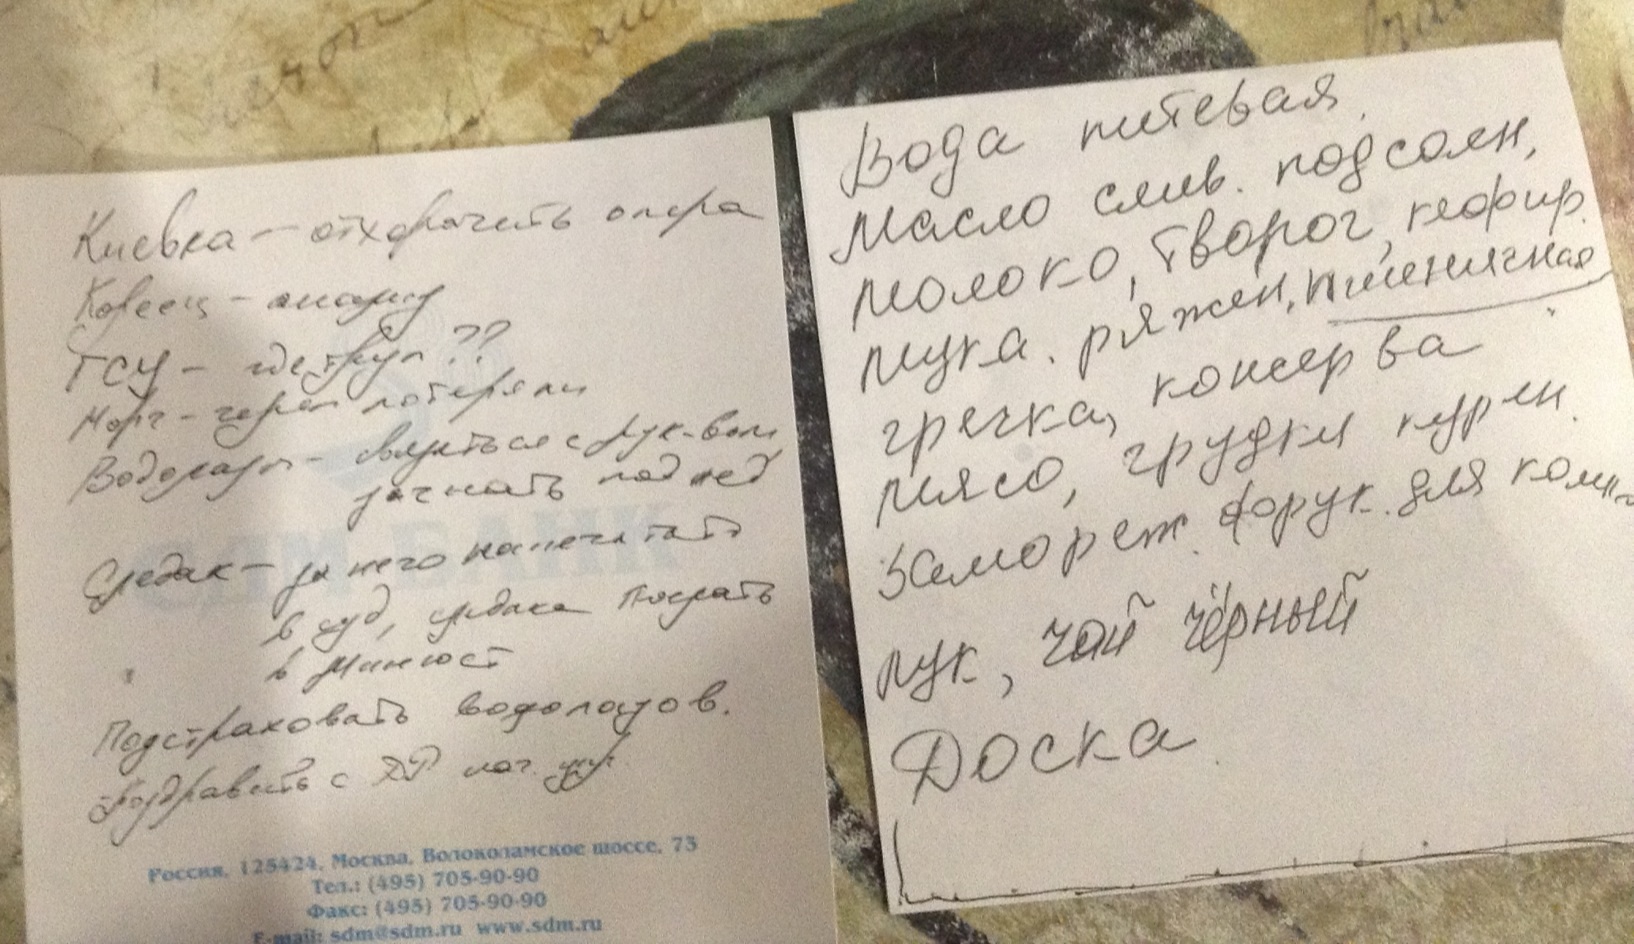 Киевка – отхерачить опера
Кореец –
ГСУ – где труп??
Морг – череп потеряли
Водолазы – связаться с рук-вом
загнать под лёд
Средак – за него напечатать
в суд, средака послать
в Минюст
Подстраховать водолазов.
Поздравить с ДР нач.
Россия, 125424, Москва, Волоколамское шоссе, 73
Тел.: (495) 705-90-90
Факс: (495) 705-90-90
E-mail: sdm@sdm.ru www.sdm.ru
Вода питьевая.
Масло слив. подсолн,
молоко, творог, кефир.
мука. ряжен, пшеничная
гречка, консерва
мясо, грудки курин.
замореж. фрук. для комп
лук, чай чёрный
Доска.